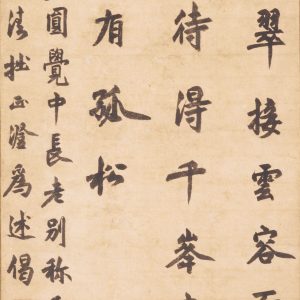 翠接雲容
待得千峯
有孤松
圓覺中長老别称
清拙正澄爲述偈